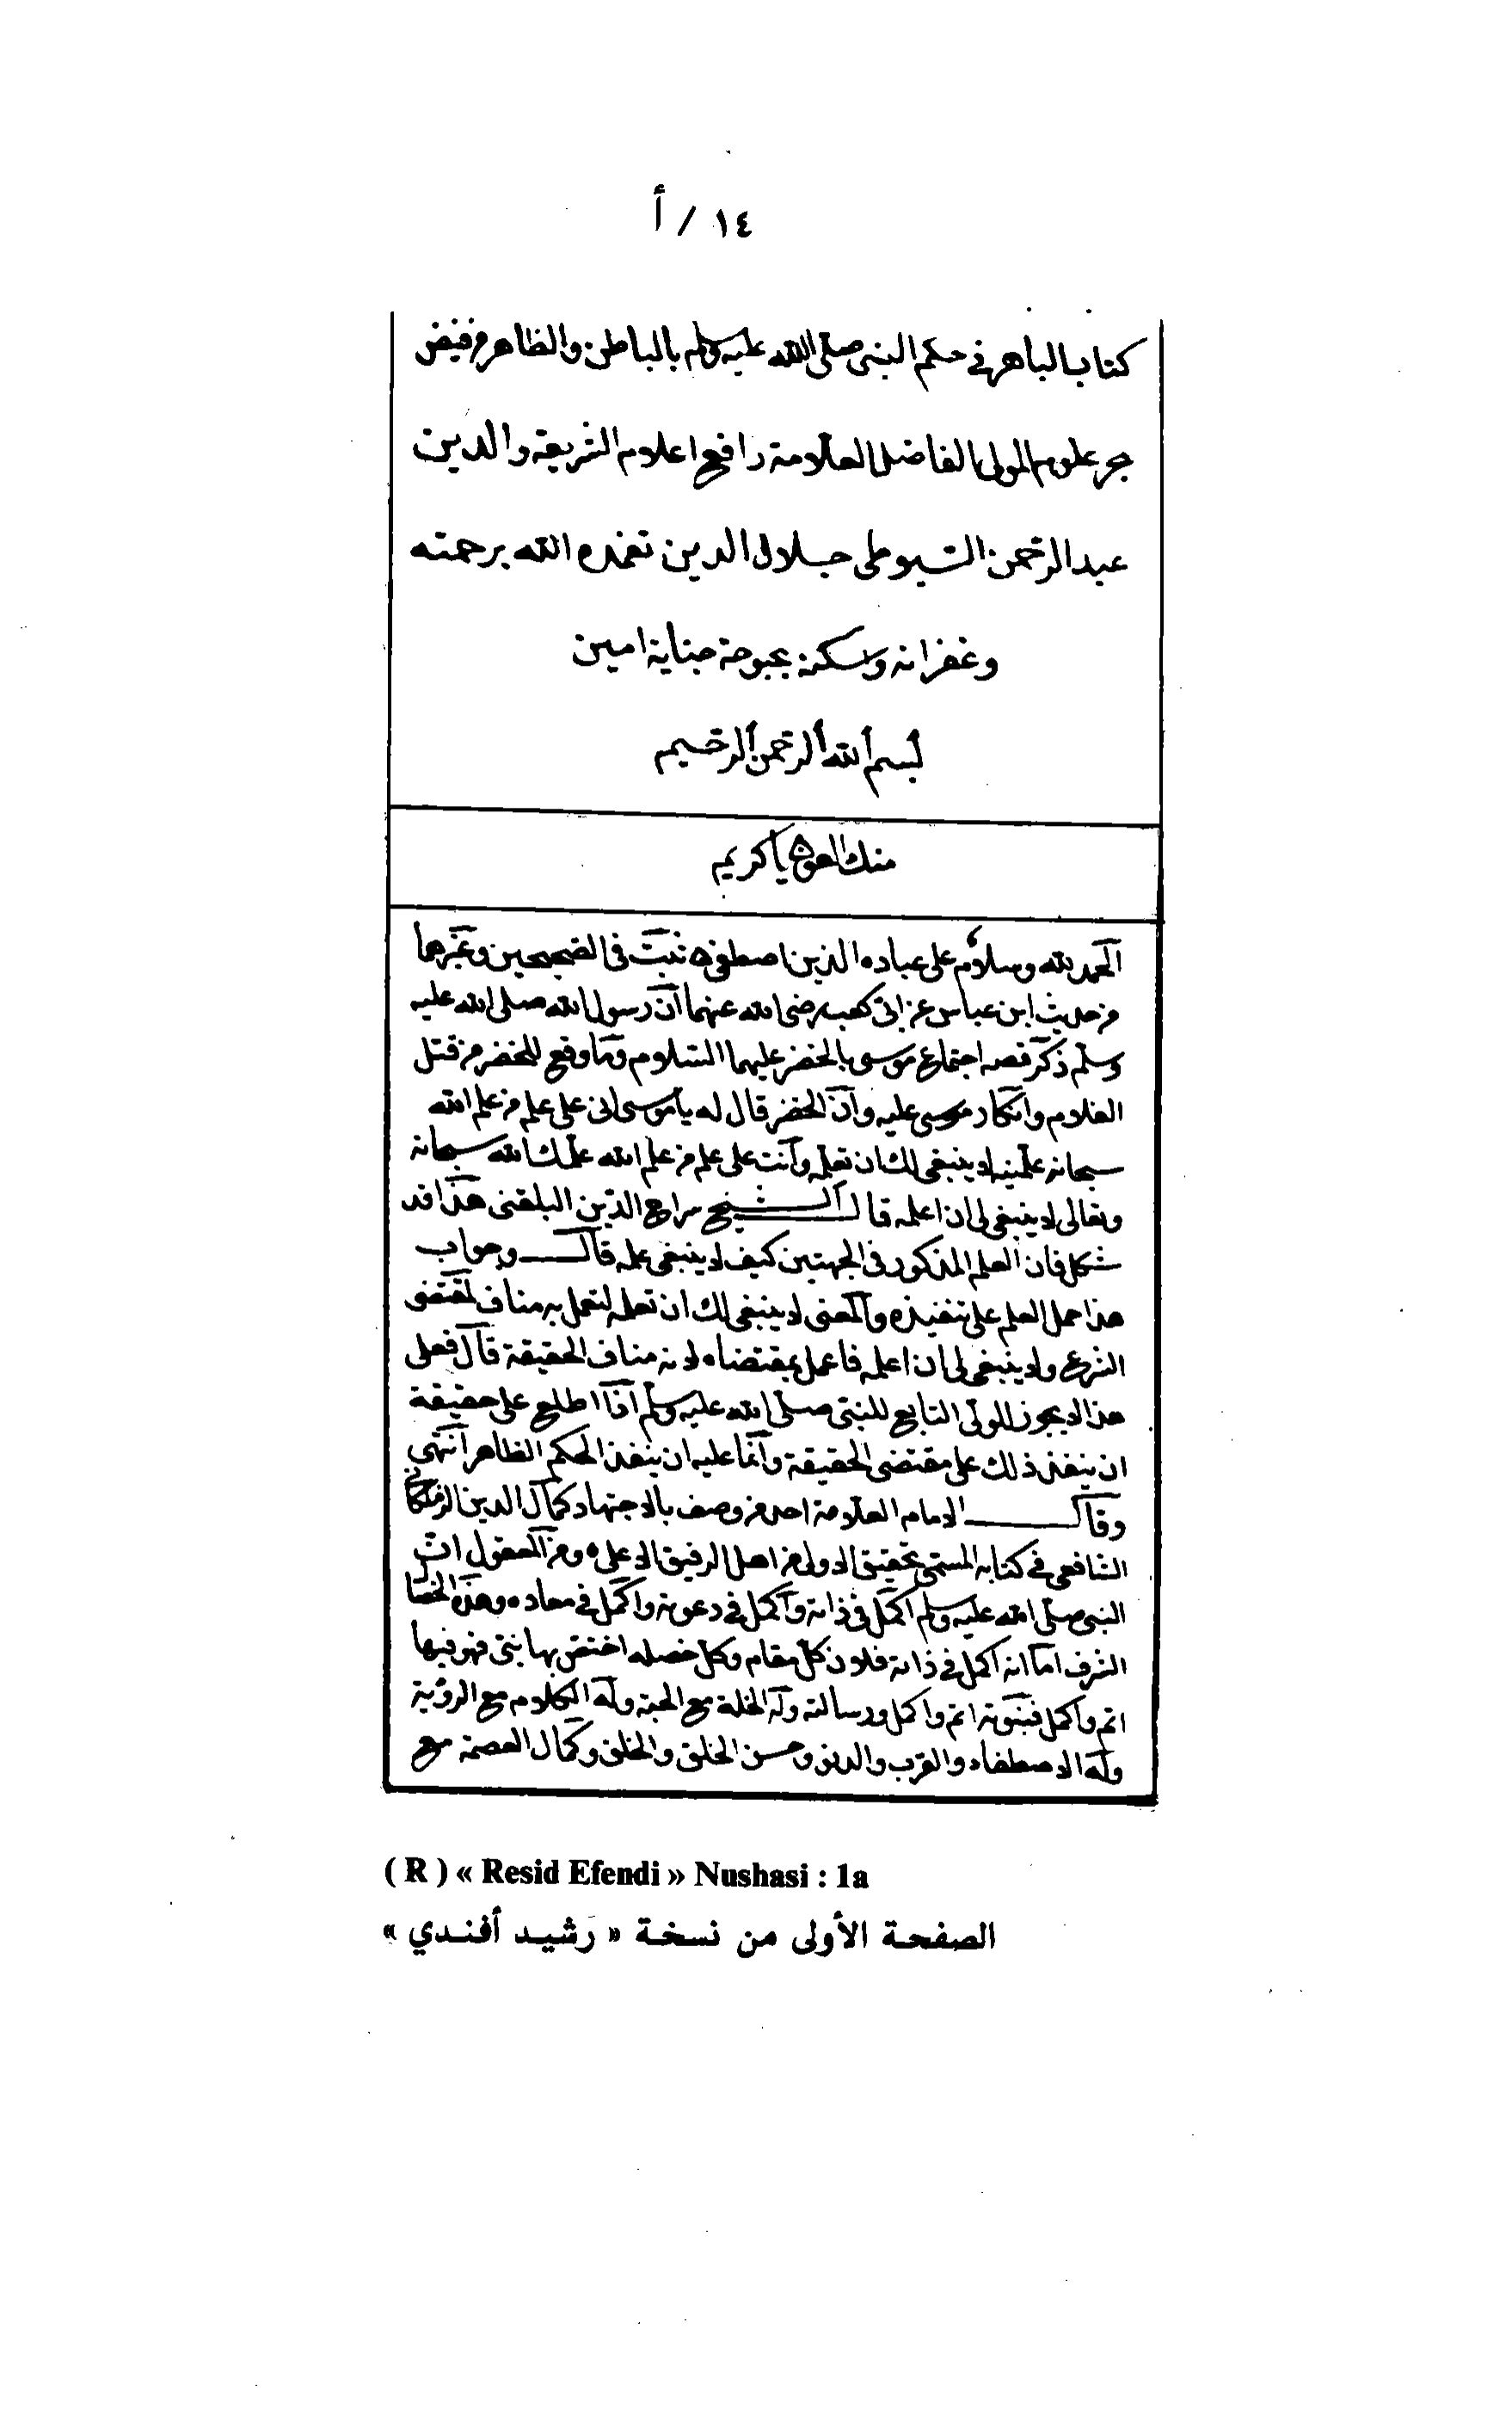 ١٤ / أ
كتاب الباهر في حكم النبي صلى الله عليه وسلم بالباطن والظاهر من فيض
بحر علوم المولى الفاضل العلامة رافع اعلام الشريعة والدين
عبد الرحمن السيوطى جلال الدين تغمده الله برحمته
وغفرانه واسكنه بحبوحة جنانه امين
بسم الله الرحمن الرحيم
منك العون يا كريم
الحمد لله وسلام على عباده الذين اصطفى ثبت فى الصحيحين وغيرهما
من حديث ابن عباس عن ابى كعب رضى الله عنهما ان رسول الله صلى الله عليه
وسلم ذكر قصه اجتماع موسى بالخضر عليهما السلام وما وقع للخضر من قتل
الغلام وانكار موسى عليه وان الخضر قال له يا موسى انى على علم من علم الله
سبحانه علمنيه لا ينبغى لك ان تعلمه وانت على علم من علم الله علمك الله سبحانه
وتعالى لا ينبغى لى ان اعلمه قال الشيخ سراج الدين البلقينى هذا قد
شكل فان العلم المذكور فى الجهتين كيف لا ينبغى علمه قال وجواب
هذا حمل العلم على تنفيذه والمعنى لا ينبغى لك ان تعلمه لتعمل به مناف لمقتضى
الشرع ولا ينبغى لى ان اعلمه فاعمل بمقتضاه لانه مناف الحقيقة قال فعلى
هذا لا يجوز للولى التابع للنبى صلى الله عليه وسلم اذا اطلع على حقيقة
ان ينفذ ذلك على مقتضى الحقيقة وانما عليه ان ينفذ الحكم الظاهر انتهى
وقال الامام العلامة احد من وصف بالاجتهاد كمال الدين الزملكانى
الشافعى في كتابه المسمى تحقيق الاولى من اهل الرفيق الاعلى ومن المعقول ان
النبى صلى الله عليه وسلم اكمل فى ذاته واكمل فى دعوته واكمل فى معاده وهذه الخصا
الشرف اما انه اكمل فى ذاته فلان كل مقام وكل خصله اختص بها نبى فهو فيها
اتم واكمل فنبوته اتم واكمل ورسالته وله الخلة مع المحبة وله الكلام مع الرؤية
وله الاصطفاء والقرب والدنو وحسن الخلق والخلق وكمال العصمة مع
( R ) « Resid Efendi » Nushasi : 1a
الصفحة الأولى من نسخة « رشيد أفندي »